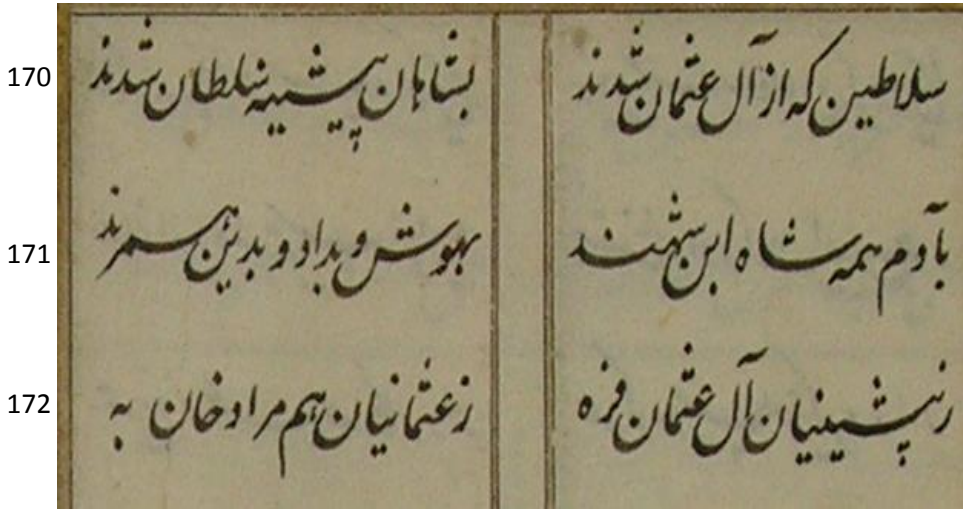 170 سلاطین که از آل عثمان شدند بشاهان پیشینه سلطان شدند
171 بآدم همه شاه ابن شهند بهوش و بداد و بدین
172 ز پیشینیان آل عثمان فره ز عثمانیان هم مراد خان به